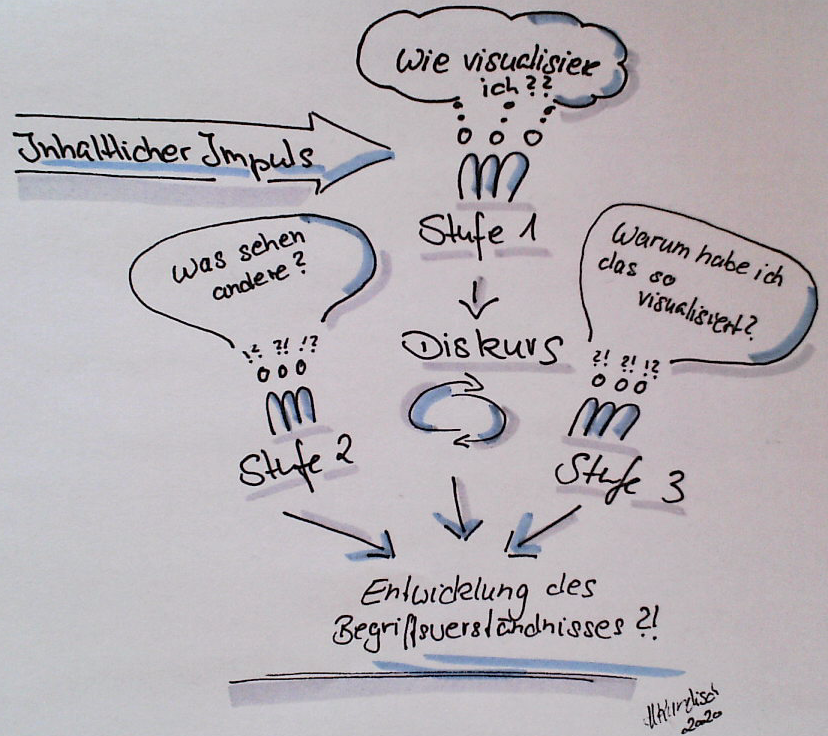 Wie visualisiere
ich??
Inhaltlicher Impuls
Stufe 1
Was sehen
andere?
Warum habe ich
das so
visualisiert?
Diskurs
!? ?! !?
?! ?! !?
Stufe 2
Stufe 3
Entwicklung des
Begriffsverständnisses ?!
2020